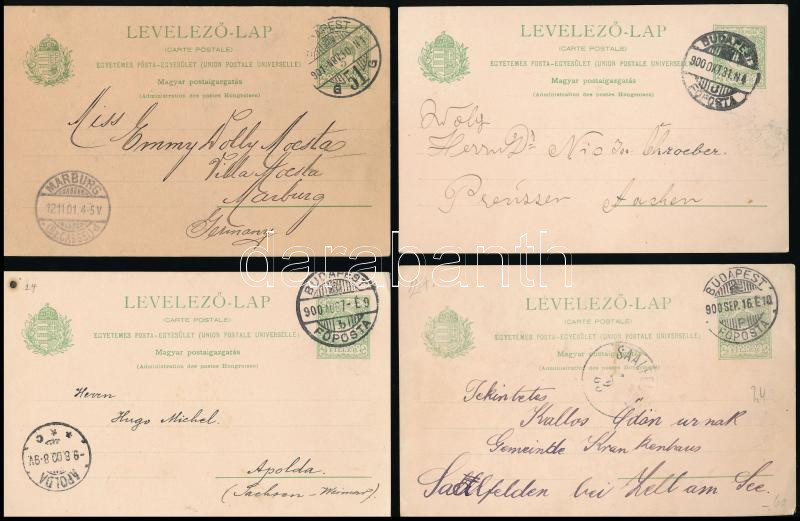 LEVELEZŐ-LAP
(CARTE POSTALE)
EGYETEMES POSTA-EGYESÜLET (UNION POSTALE UNIVERSELLE)
Magyar postaigazgatás
(Administration des postes Hongroises)
51
G G
Miss
Emmy Dolly Mocsta
Villa Mocsta
Marburg
Germany
MARBURG
12.11.01.4-5V
LEVELEZŐ-LAP
(CARTE POSTALE)
EGYETEMES POSTA-EGYESÜLET (UNION POSTALE UNIVERSELLE)
Magyar postaigazgatás
(Administration des postes Hongroises)
BUDAPEST
900 OKT.31.N4
FŐPOSTA
Herrn Dr
Preussen Aachen
darabanth
24
LEVELEZŐ-LAP
(CARTE POSTALE)
EGYETEMES POSTA-EGYESÜLET (UNION POSTALE UNIVERSELLE)
Magyar postaigazgatás
(Administration des postes Hongroises)
BUDAPEST
FŐPOSTA
Herrn
Hugo Michel.
Apolda
(Sachsen-Weimar)
APOLDA
-9.8.00.8-9V.
LEVELEZŐ-LAP
(CARTE POSTALE)
EGYETEMES POSTA-EGYESÜLET (UNION POSTALE UNIVERSELLE)
Magyar postaigazgatás
(Administration des postes Hongroises)
BUDAPEST
900 SEP.16.E10
FŐPOSTA
Tekintetes
Kallos Ödön urnak
Gemeinde Krankenhaus
Saalfelden bei Zell am See.